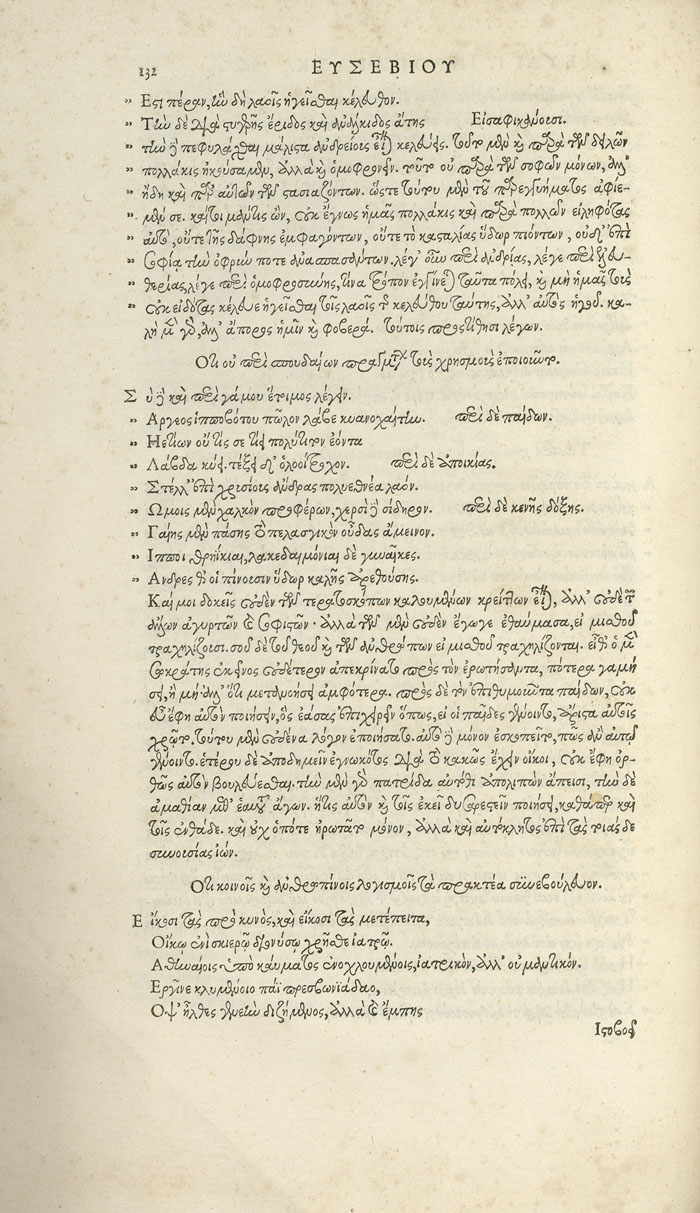 132 ΕΥΣΕΒΙΟΥ
Εστι πέραν, τὼ δὴ λαοῖς ἡγεῖσθαι κέλευθον.
Τὼ δὲ διὰ στυγερῆς ἔριδος καὶ ἀνάλκιδος ἄτης Εἰσαφικνεῖσθαι.
τὴν δὲ πεφυλάχθαι μάλιστα ἀνδρείοις εἶναι κελεύεις. τοῦτο μὲν καὶ παρὰ τῶν δειλῶν
πολλάκις ἠκούσαμεν, ἀλλὰ καὶ ὁμοφρονεῖν. τοῦτο οὐ παρὰ τῶν σοφῶν μόνων, ἀλλ'
ἤδη καὶ παρ' αὐτῶν τῶν στασιαζόντων. ὥστε τούτου μὲν τοῦ παρεγγυήματος ἀφίε-
μέν σε. καίτοι μάντις ὢν, οὐκ ἔγνως ἡμᾶς πολλάκις καὶ παρὰ πολλῶν εἰληφότας
αὐτὸ, οὔτε τῆς δάφνης ἐμφαγόντων, οὔτε τὸ κασταλίας ὕδωρ πιόντων, οὐδ' ἐπὶ
σοφίᾳ τὴν ὀφρύν ποτε ἀνασπασάντων. λέγ' οὖν περὶ ἀνδρίας, λέγε περὶ ἐλευ-
θερίας, λέγε περὶ ὁμοφροσύνης, τίνα τρόπον ἐγγίνεται ταῦτα πόλει, καὶ μὴ ἡμᾶς τοὺς
οὐκ εἰδότας κέλευε ἡγεῖσθαι τοῖς λαοῖς τῆς κελεύθου ταύτης, ἀλλ' αὐτὸς ἡγοῦ. κα-
λὴ μὲν γὰρ, ἀλλ' ἄπορος ἡμῖν καὶ φοβερά. τούτοις προστίθησι λέγων.
Οτι οὐ περὶ σπουδαίων πραγμάτων τοὺς χρησμοὺς ἐποιοῦντο.
Σὺ δὲ καὶ περὶ γάμου ἕτοιμος λέγειν.
Αργεος ἱπποβότου πῶλον λάβε κυανοχαίτην. περὶ δὲ παίδων.
Ηετίων οὔτις σε τίει πολύτιτον ἐόντα
Λάβδα κύει. τέξει δ' ὀλοοίτροχον. περὶ δὲ ἀποικίας.
Στέλλ' ἐπὶ χρυσίοις ἄνδρας πολυεθνέα λαόν.
Ωμοις μὲν χαλκὸν προφέρων, χερσὶ δὲ σίδηρον. περὶ δὲ κενῆς δόξης.
Γαίης μὲν πάσης τὸ πελασγικὸν οὖδας ἄμεινον.
Ιπποι θρηίκιαι, λακεδαιμόνιαι δὲ γυναῖκες.
Ανδρες θ' οἳ πίνουσιν ὕδωρ καλῆς ἀρεθούσης.
Καί μοι δοκεῖς οὐδὲν τῶν τερατοσκόπων καλουμένων κρείττων εἶναι, ἀλλ' οὐδὲ τῶν
ἄλλων ἀγυρτῶν καὶ σοφιστῶν· ἀλλὰ τῶν μὲν οὐδὲν ἔγωγε ἐθαύμασα, εἰ μισθοῦ
τραχηλίζουσι. σοῦ δὲ τοῦ θεοῦ καὶ τῶν ἀνθρώπων εἰ μισθοῦ τραχηλίζονται. εἶθ' ὁ μὲν
Σωκράτης ἐκεῖνος οὐδέτερον ἀπεκρίνατο πρὸς τὸν ἐρωτήσαντα, πότερα γαμή
σει, ἢ μὴ, ἀλλ' ὅτι μετανοήσει ἀμφότερα. πρὸς δὲ τὸν ἐπιθυμοῦντα παίδων, οὐκ
εὖ ἔφη αὐτὸν ποιήσειν, ὃς ἐάσας ἐπιχειρεῖν ὅπως, εἰ οἱ παῖδες γένοιντο, ἄριστα αὐτοῖς
χρῷτο. τούτου μὲν οὐδένα λόγον ἐποιήσατο. αὐτὸ δὲ μόνον ἐσκοπεῖτο, πῶς ἂν αὐτῷ
γένοιντο. ἑτέρου δὲ ἀποδημεῖν ἐγνωκότος διὰ τὸ κακῶς ἔχειν οἴκοι, οὐκ ἔφη ὀρ-
θῶς αὐτὸν βουλεύεσθαι. τὴν μὲν γὰρ πατρίδα αὐτόθι ἀπολιπὼν ἄπεισι, τὴν δὲ
ἀμαθίαν μεθ' ἑαυτοῦ ἄγων. ἥτις αὐτὸν καὶ τοῖς ἐκεῖ δυσαρεστεῖν ποιήσει, καθάπερ καὶ
τοῖς ἐνθάδε. καὶ οὐχ ὁπότε ἠρωτᾶτο μόνον, ἀλλὰ καὶ αὐτόκλητος ἐπὶ τὰς τοιάσδε
συνουσίας ἰών.
Οτι κοινοῖς καὶ ἀνθρωπίνοις λογισμοῖς τὰ πρακτέα συνεβούλευον.
Εἴκοσι τὰς πρὸ κυνὸς, καὶ εἴκοσι τὰς μετέπειτα,
Οἴκῳ ἐνὶ σκιερῷ διονύσῳ χρῆσθε ἰατρῷ.
Αθηναίοις ὑπὸ καύματος ἐνοχλουμένοις, ἰατρικὸν, ἀλλ' οὐ μαντικόν.
Εργῖνε κλυμένοιο πάϊ πρεσβωνιάδαο,
Οψ' ἦλθες γενεὴν διζήμενος, ἀλλὰ καὶ ἔμπης
Ιστοβοῆ